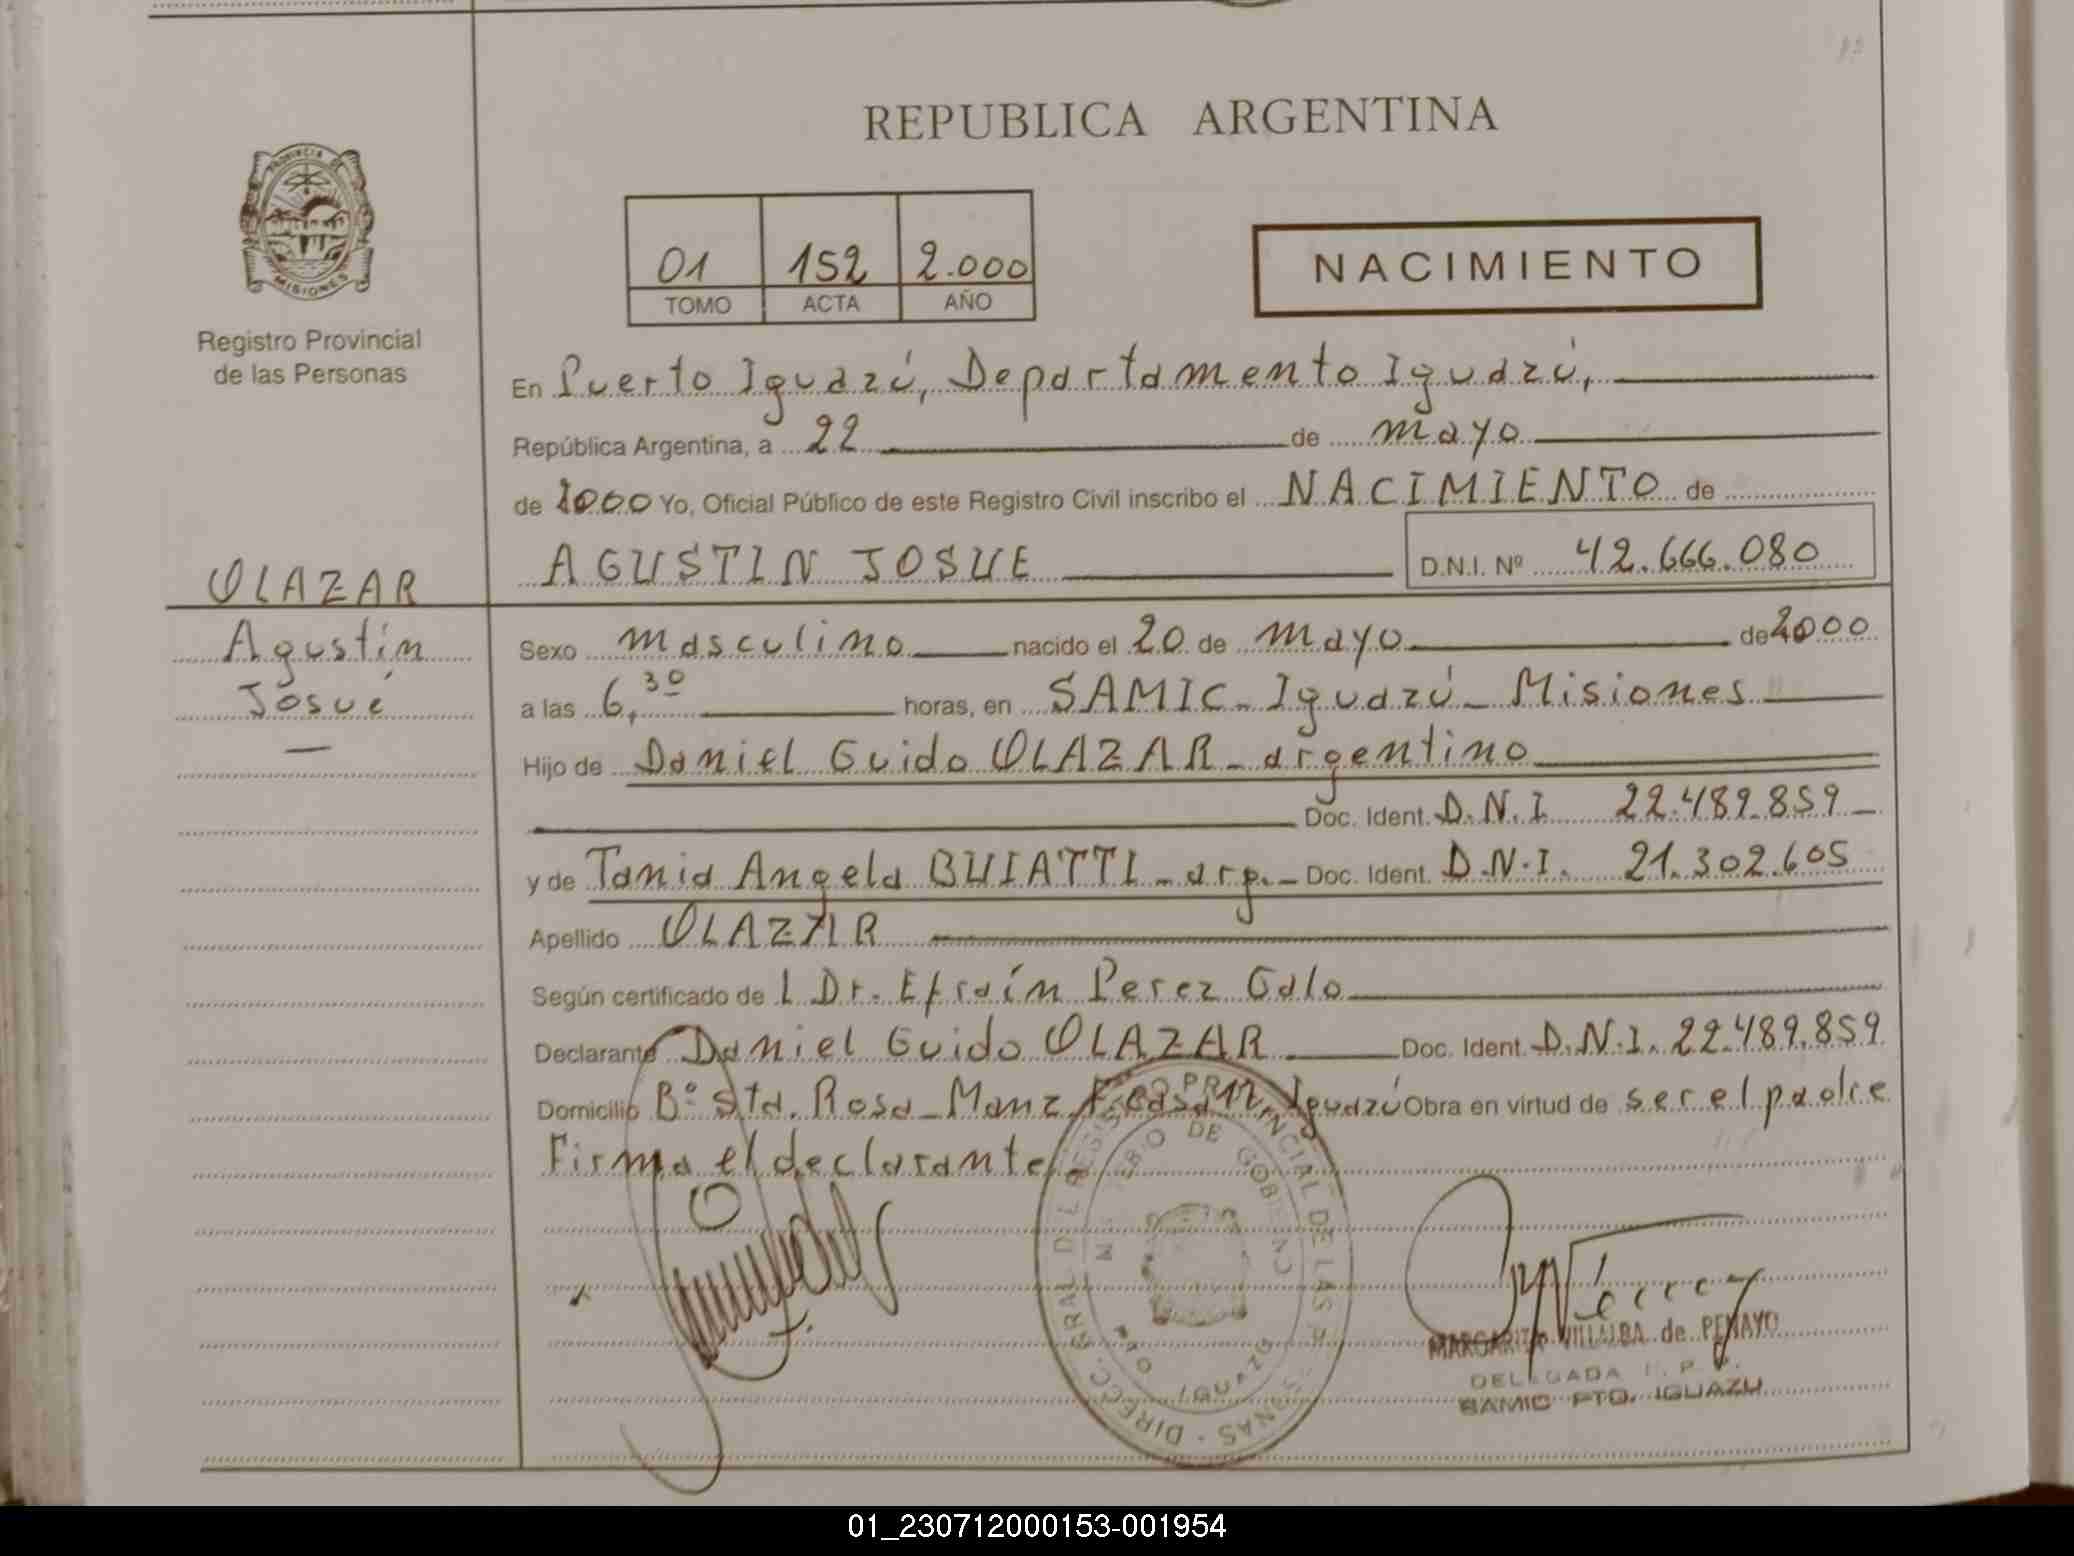 REPUBLICA ARGENTINA
PROVINCIA DE MISIONES
Registro Provincial
de las Personas
01 152 2.000
TOMO ACTA AÑO
NACIMIENTO
En Puerto Iguazú, Departamento Iguazú,
República Argentina, a 22 de mayo
de 2000 Yo, Oficial Público de este Registro Civil inscribo el NACIMIENTO de
AGUSTIN JOSUE D.N.I. Nº 42.666.080
OLAZAR
Agustín
Josué
Sexo masculino nacido el 20 de mayo de 2000
a las 6,30 horas, en SAMIC - Iguazú - Misiones
Hijo de Daniel Guido OLAZAR - argentino
Doc. Ident. D.N.I 22.489.859
y de Tania Angela BUIATTI - arg. - Doc. Ident. D.N.I. 21.302.605
Apellido OLAZAR
Según certificado de L Dr. Efraín Perez Galo
Declarante Daniel Guido OLAZAR Doc. Ident. D.N.I. 22.489.859
Domicilio Bº Sta. Rosa - Manz casa Iguazú Obra en virtud de ser el padre
Firma el declarante
MARGARITA VILLALBA de PENAYO
DELEGADA
SAMIC PTO. IGUAZU
01_230712000153-001954